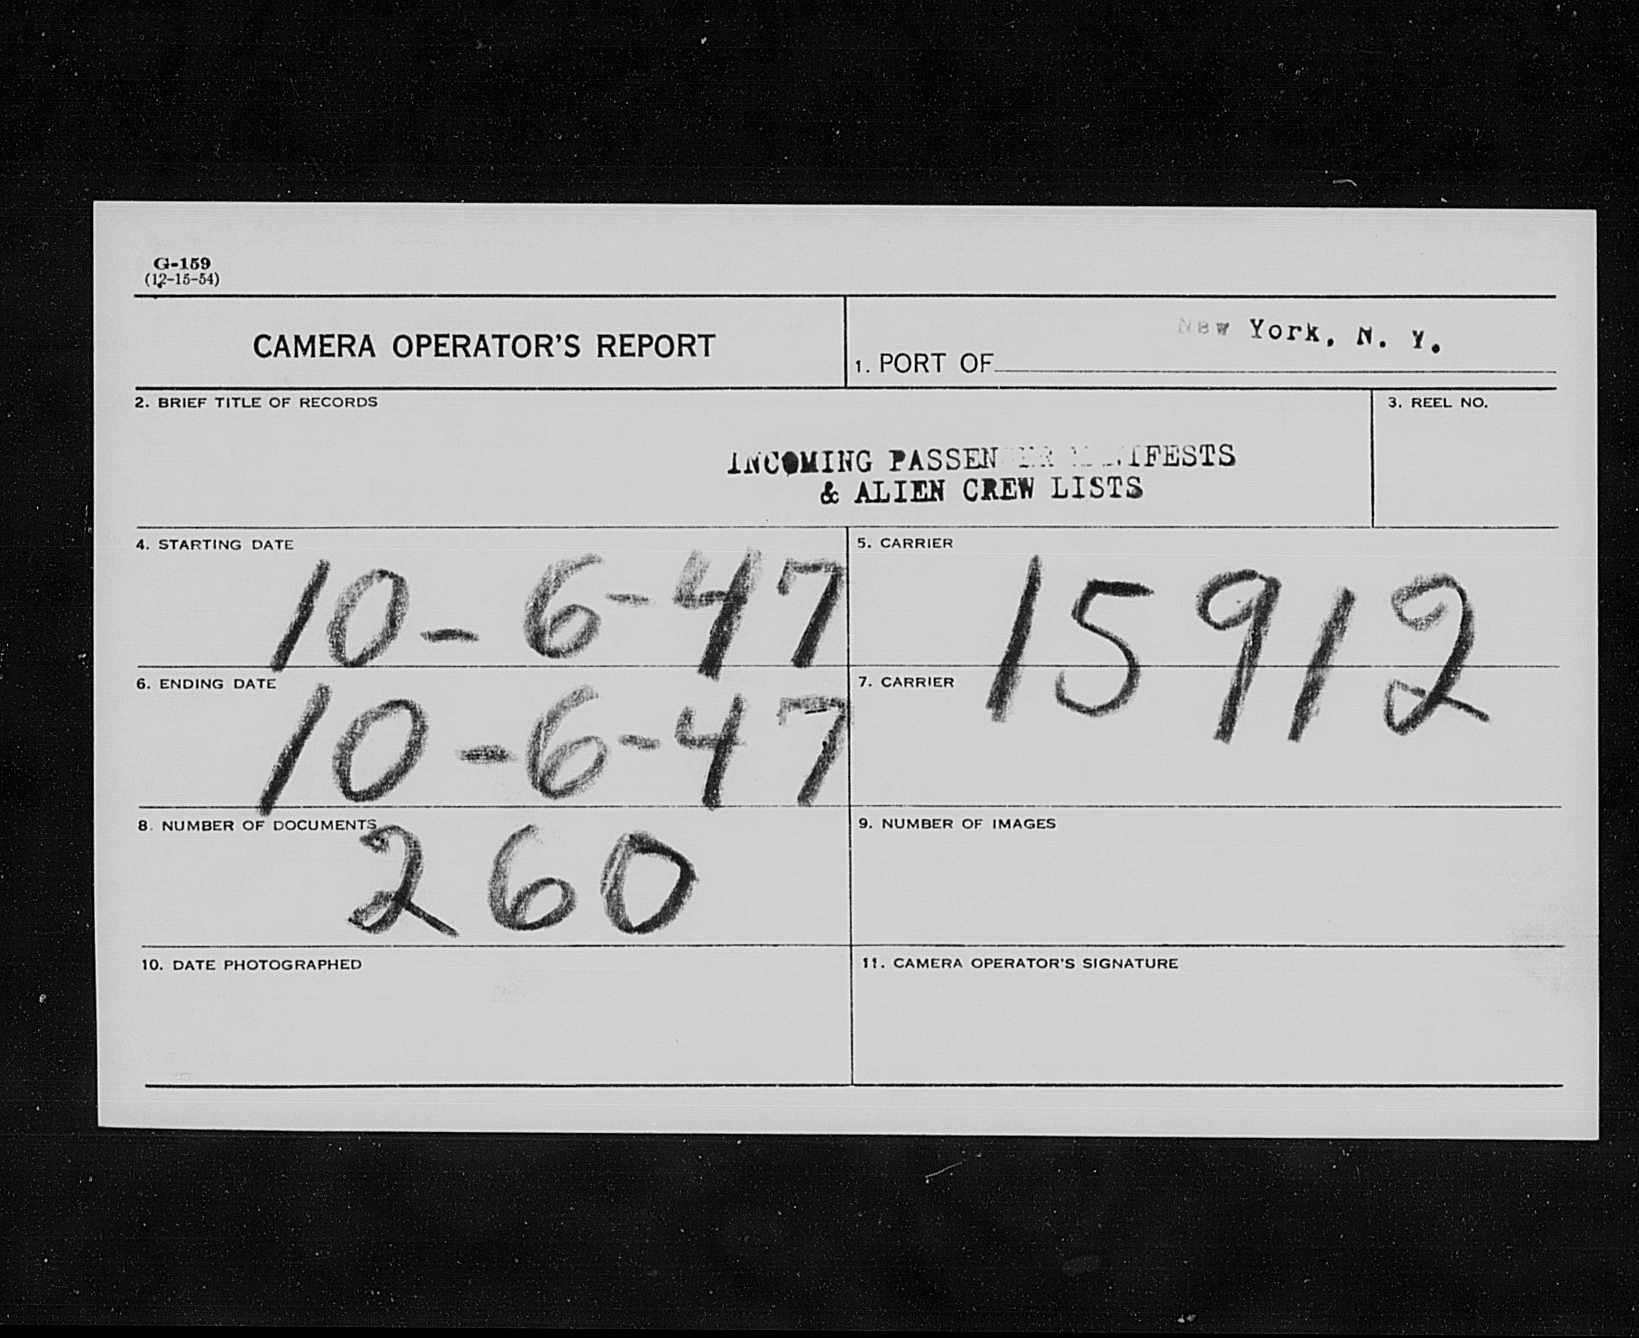 G-159
(12-15-54)
CAMERA OPERATOR'S REPORT
1. PORT OF New York, N. Y.
2. BRIEF TITLE OF RECORDS
INCOMING PASSENGER MANIFESTS
& ALIEN CREW LISTS
3. REEL NO.
4. STARTING DATE
10-6-47
5. CARRIER
15912
6. ENDING DATE
10-6-47
7. CARRIER
8. NUMBER OF DOCUMENTS
260
9. NUMBER OF IMAGES
10. DATE PHOTOGRAPHED
11. CAMERA OPERATOR'S SIGNATURE